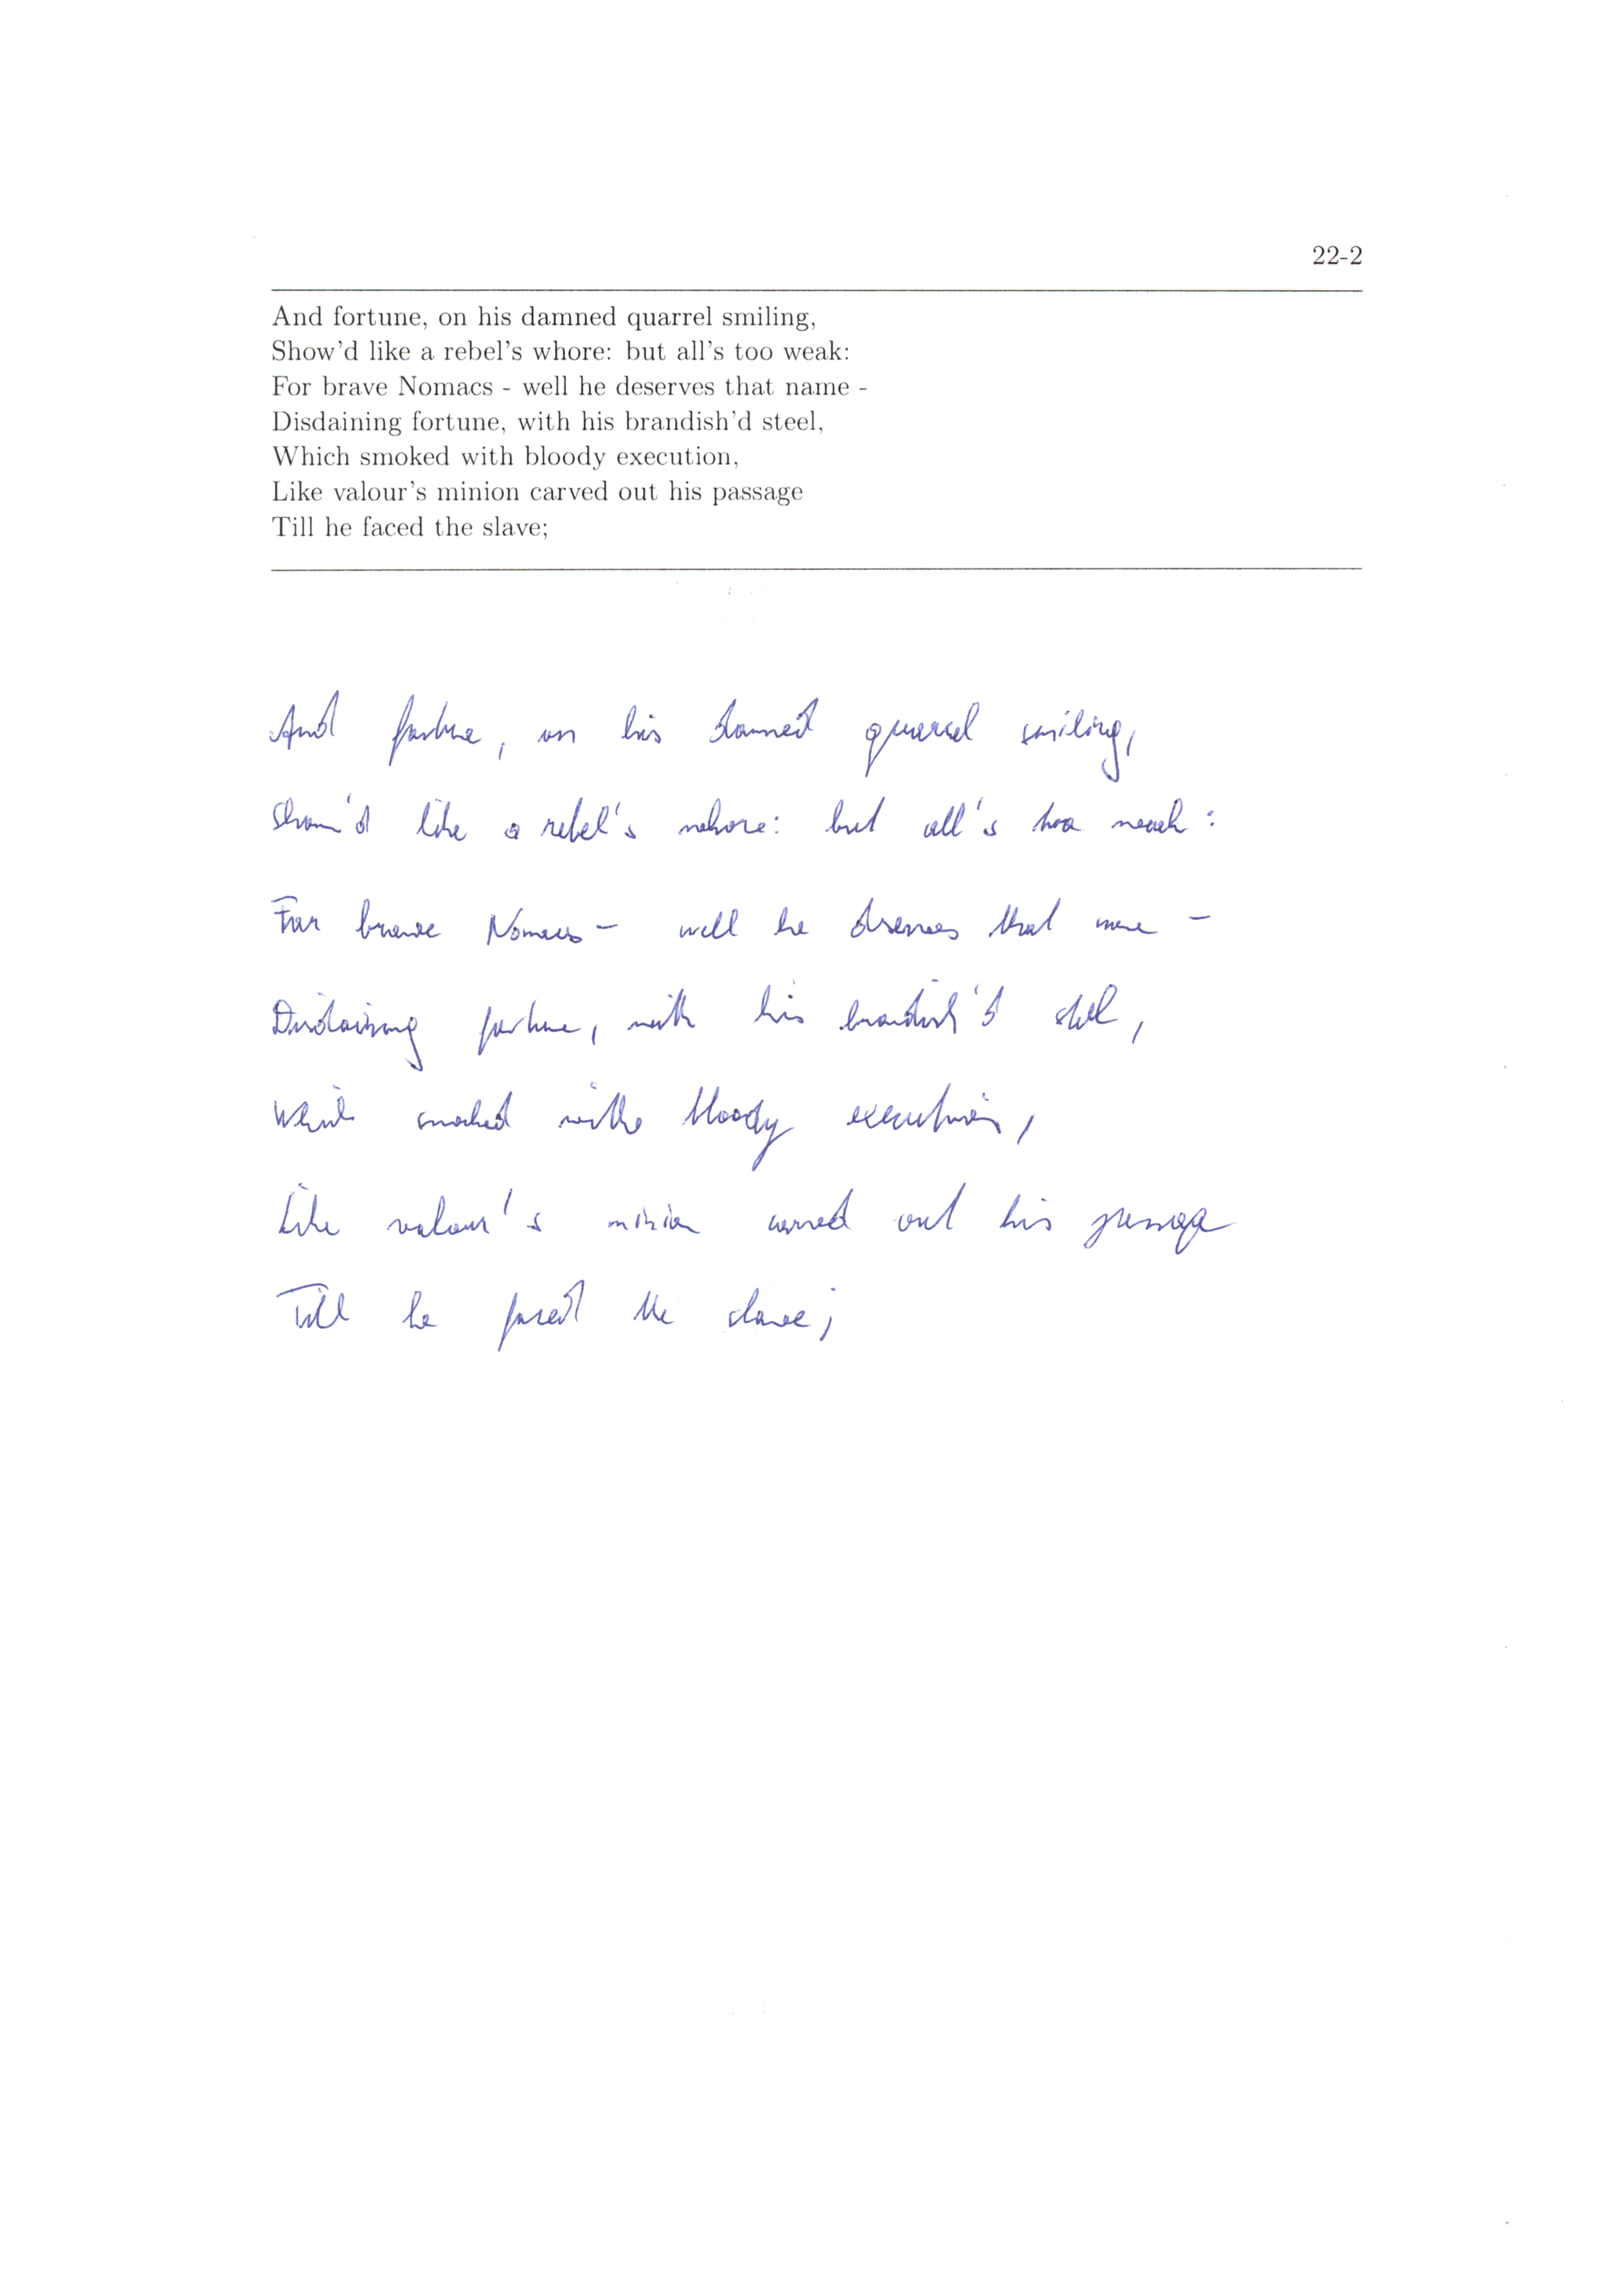 22-2
And fortune, on his damned quarrel smiling,
Show'd like a rebel's whore: but all's too weak:
For brave Nomacs - well he deserves that name -
Disdaining fortune, with his brandish'd steel,
Which smoked with bloody execution,
Like valour's minion carved out his passage
Till he faced the slave;
And fortune, on his damned quarrel smiling,
Show'd like a rebel's whore: but all's too weak:
For brave Nomacs - well he deserves that name -
Disdaining fortune, with his brandish'd steel,
Which smoked with bloody execution,
Like valour's minion carved out his passage
Till he faced the slave;